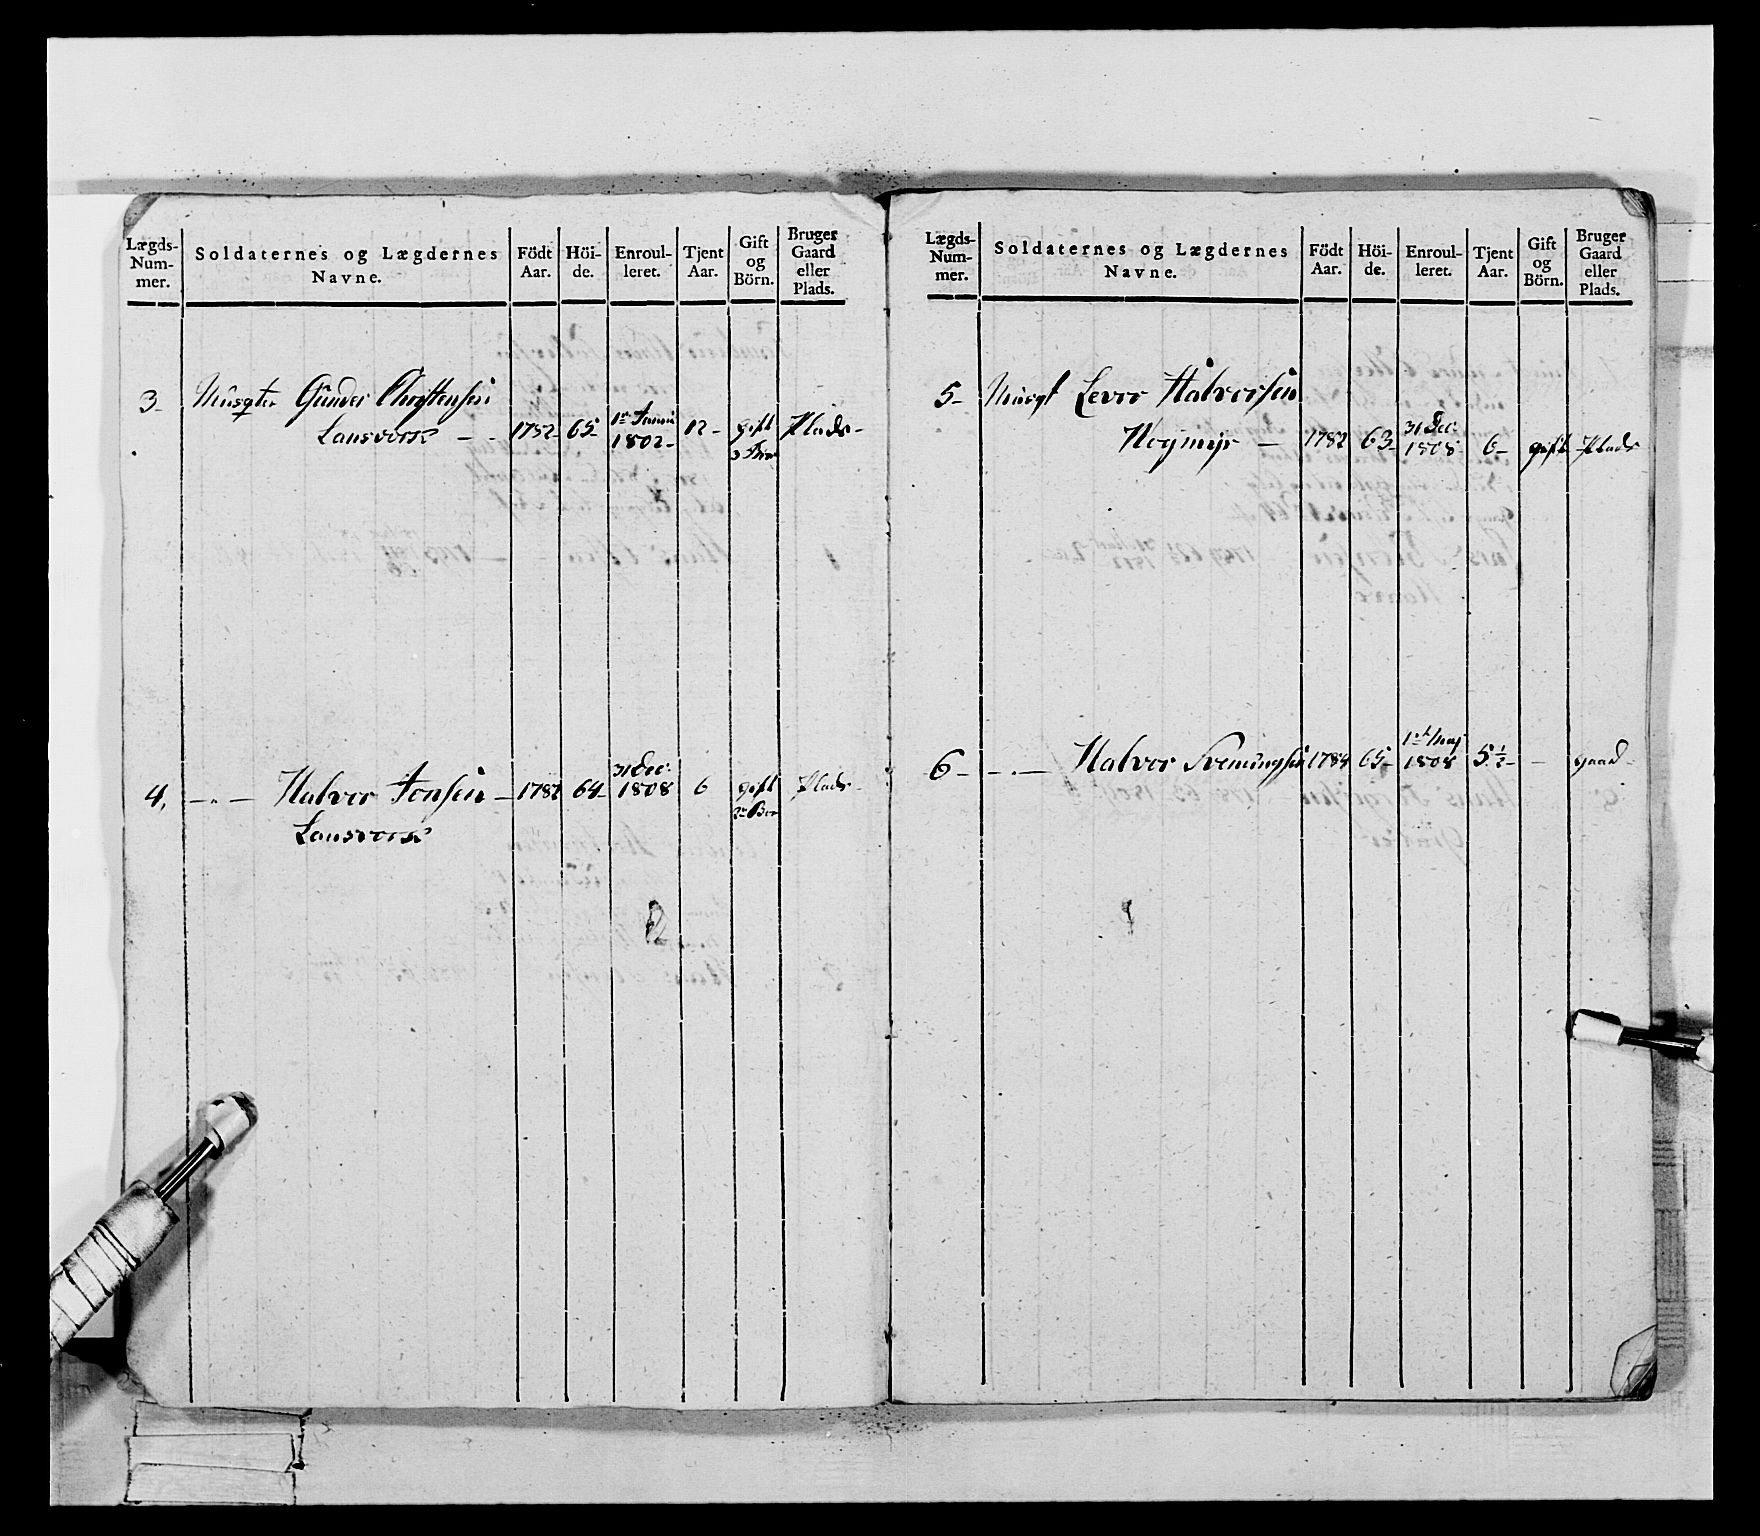 Lægds-
Num-
mer.
Soldaternes og Lægdernes
Navne.
Födt
Aar.
Höi-
de.
Enroul-
leret.
Tjent
Aar.
Gift
og
Börn.
Bruger
Gaard
eller
Plads.
3- Musqter Gunder Christensen
Lansværk - - 1782- 65- 1802- 12- gift Plads-
3 Bör
4, -„- Halvor Jonsen - 1782 64- 31 Dec: 1808 6 gift Plads-
Lansværk 2 Bör
Lægds-
Num-
mer.
Soldaternes og Lægdernes
Navne.
Födt
Aar.
Höi-
de.
Enroul-
leret.
Tjent
Aar.
Gift
og
Börn.
Bruger
Gaard
eller
Plads.
5- Levor Halvorsen
Hogmyr - 1782 63- 31 Dec: 1808- 6- gift Plads
6- -„- Halvor 1784 65- 1808 5½- - gaard-